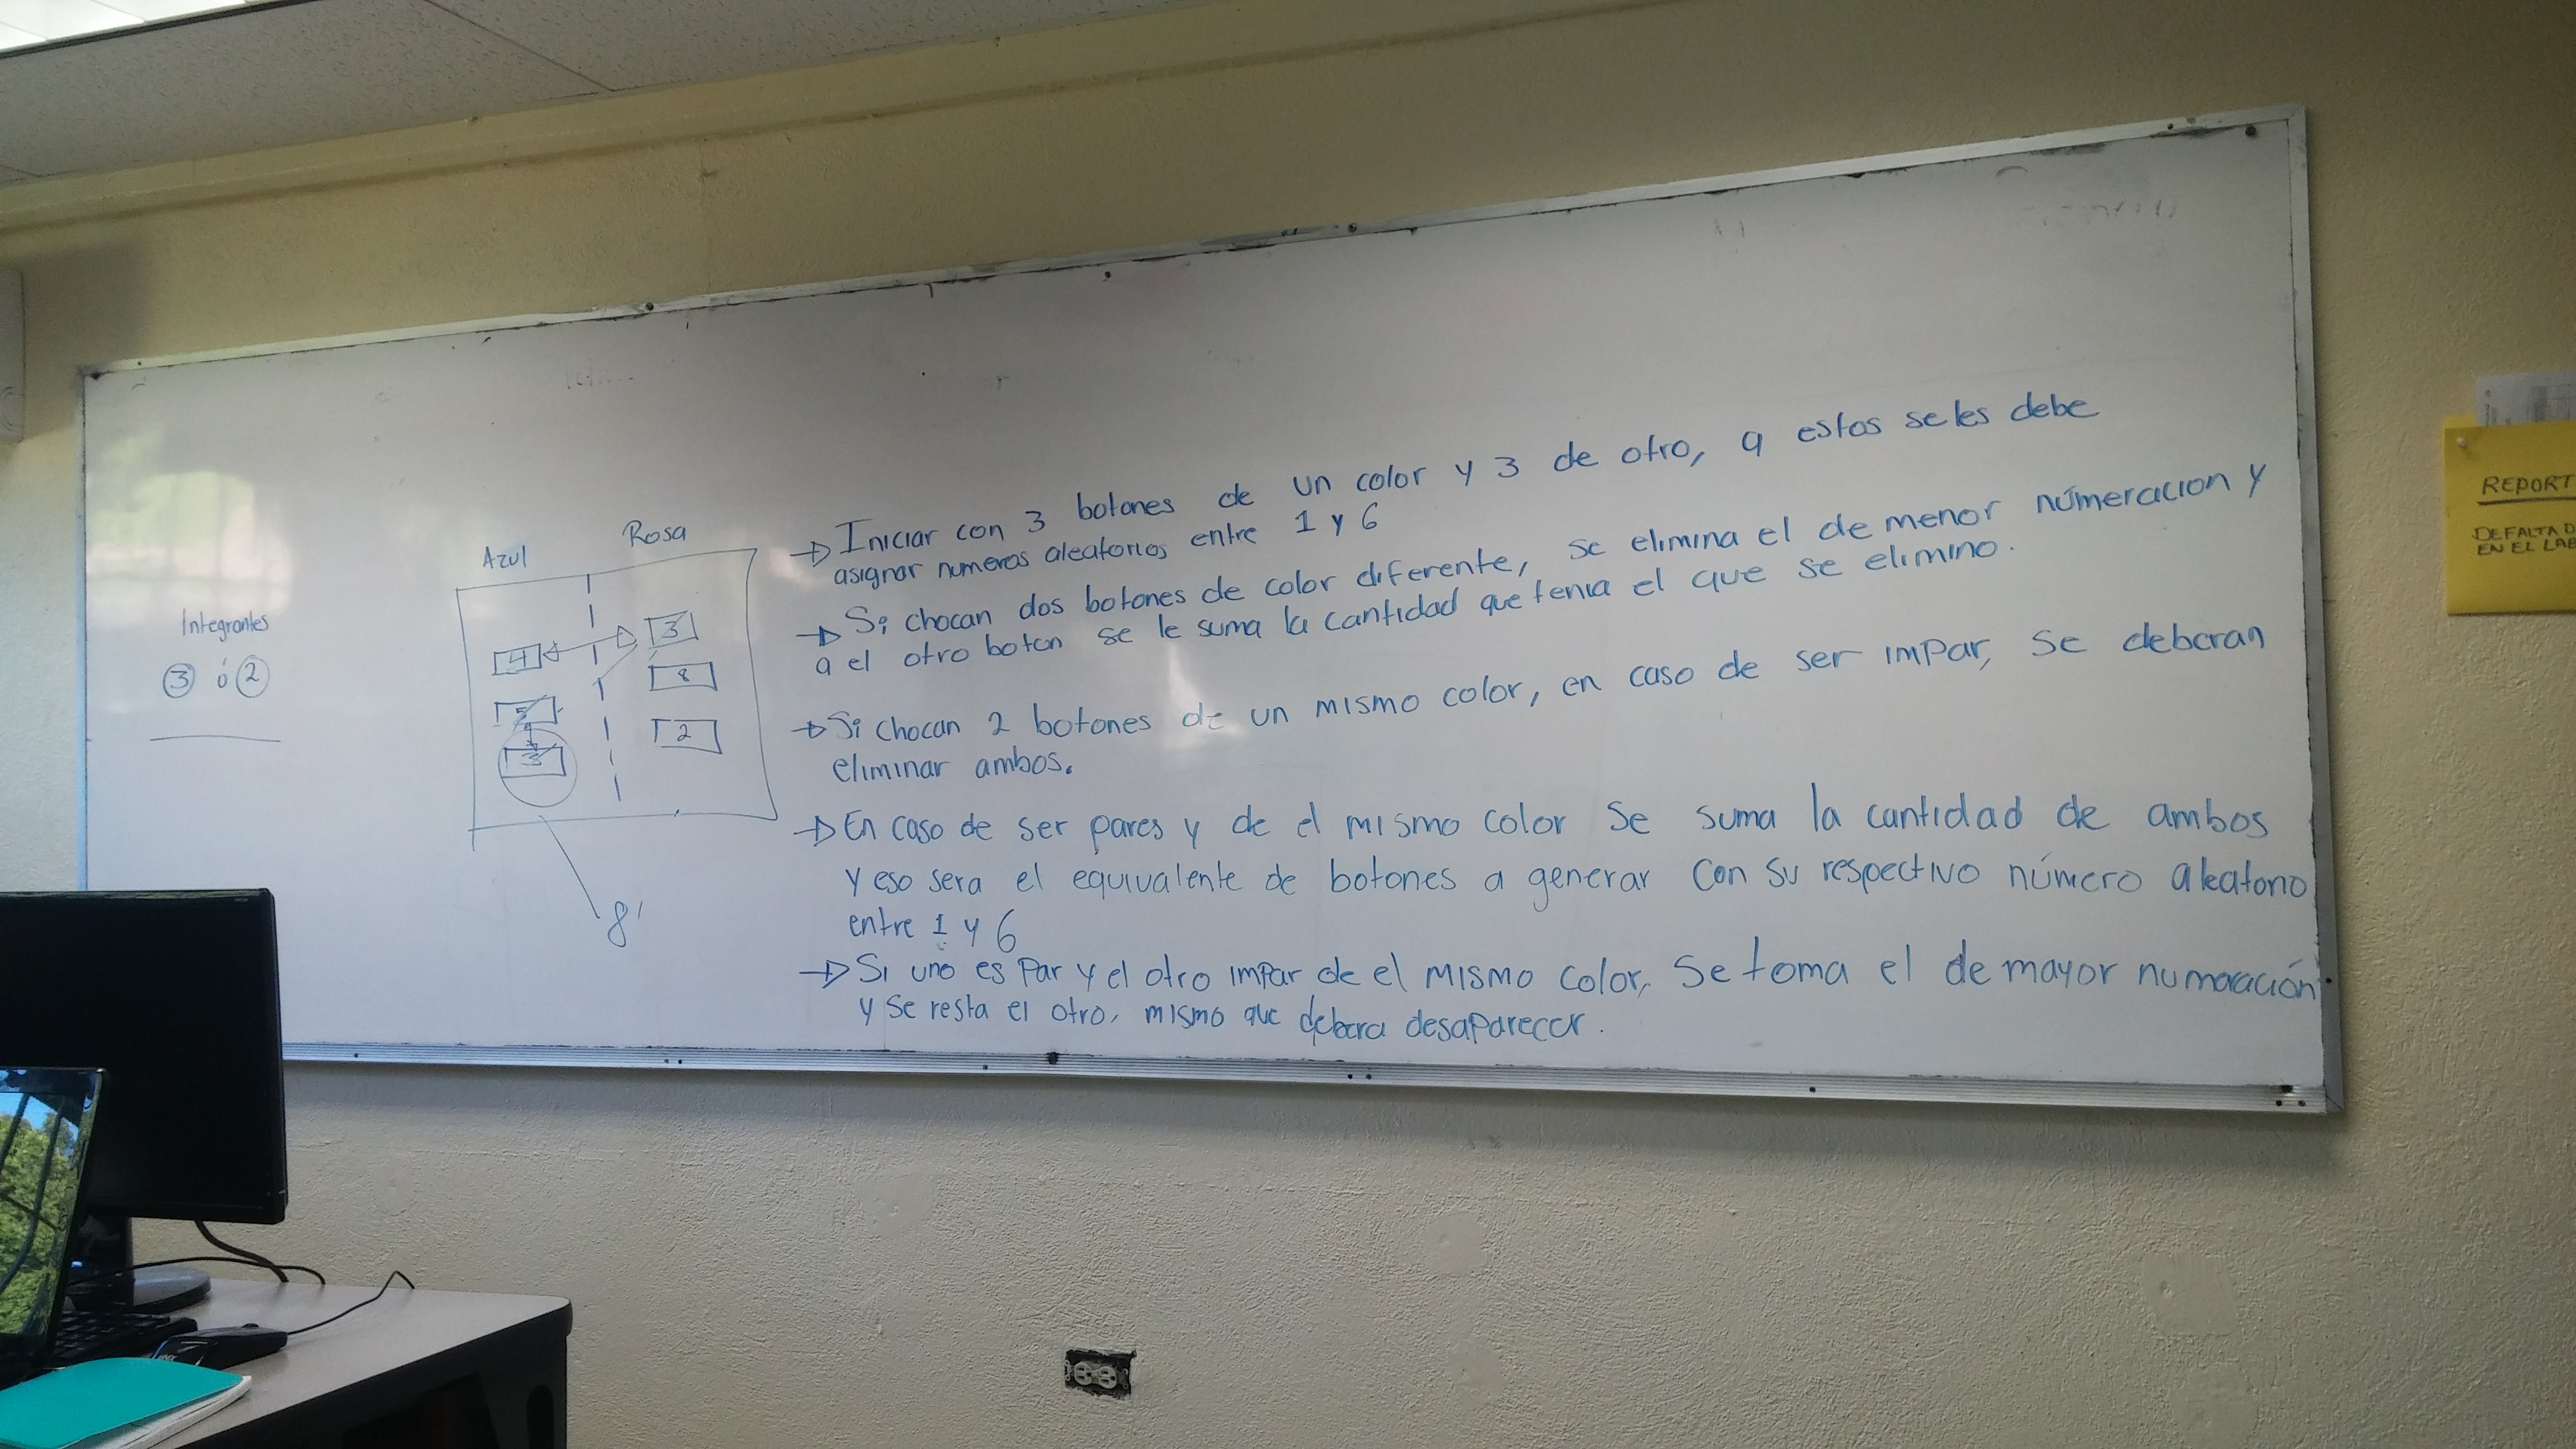 Integrantes
3 ó 2
Azul
Rosa
4
3
8
2
3
8'
Iniciar con 3 botones de un color y 3 de otro, a estos se les debe
asignar numeros aleatorios entre 1 y 6
Si chocan dos botones de color diferente, se elimina el de menor númeracion y
a el otro boton se le suma la cantidad que tenia el que se elimino.
Si chocan 2 botones de un mismo color, en caso de ser impar, se deberan
eliminar ambos.
En caso de ser pares y de el mismo color se suma la cantidad de ambos
y eso sera el equivalente de botones a generar con su respectivo número aleatorio
entre 1 y 6
Si uno es par y el otro impar de el mismo color, se toma el de mayor numeración
y se resta el otro, mismo que debera desaparecer.
REPORT
DE FALTA D
EN EL LAB